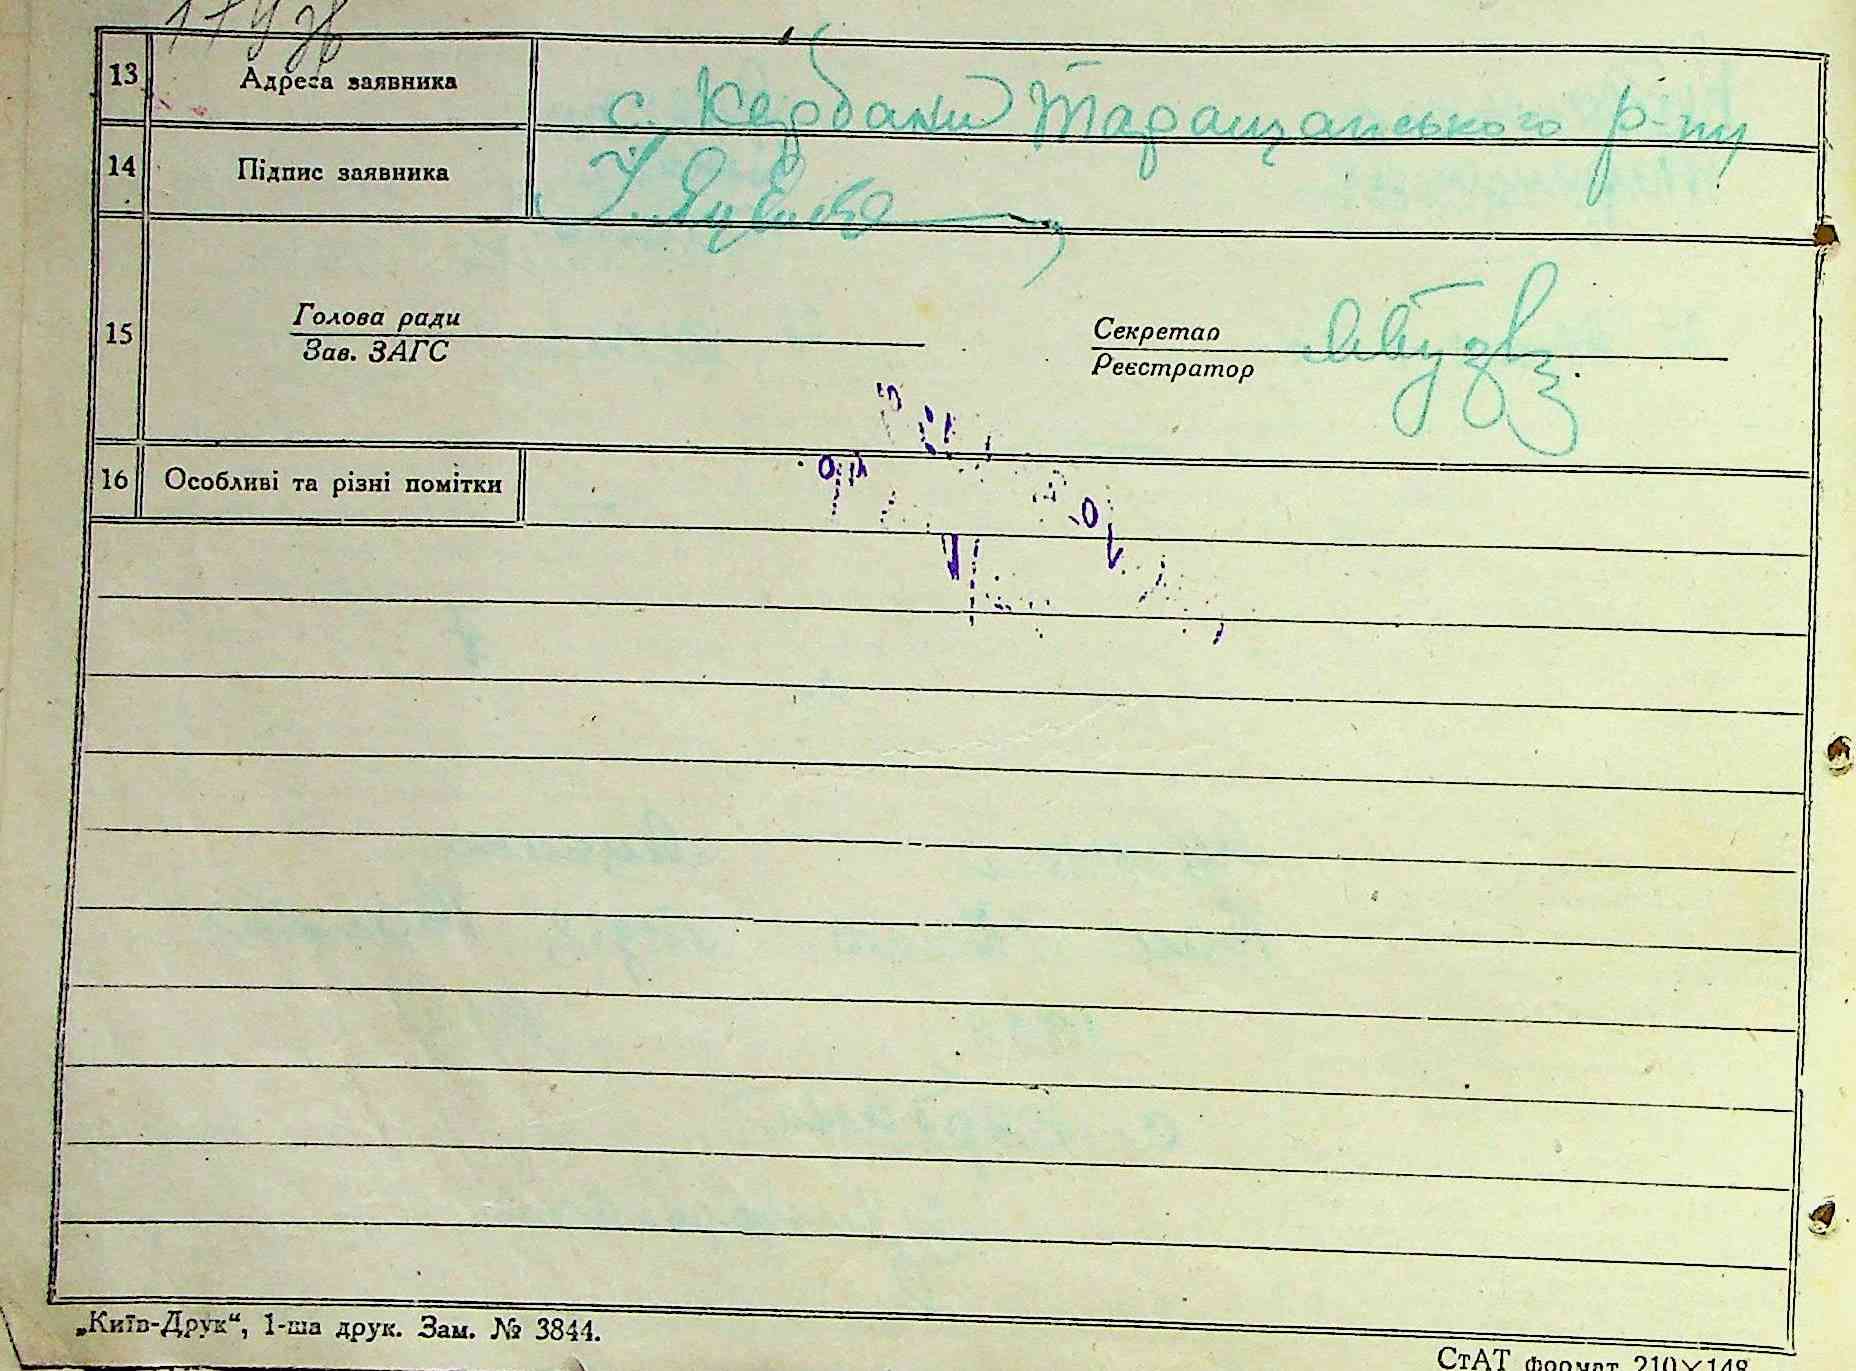 13 Адреса заявника с. Кербани Таращанського р-ну
14 Підпис заявника
15 Голова ради
Зав. ЗАГС
Секретар
Реєстратор
16 Особливі та різні помітки
„Київ-Друк“, 1-ша друк. Зам. № 3844.
СтАТ формат 210×148